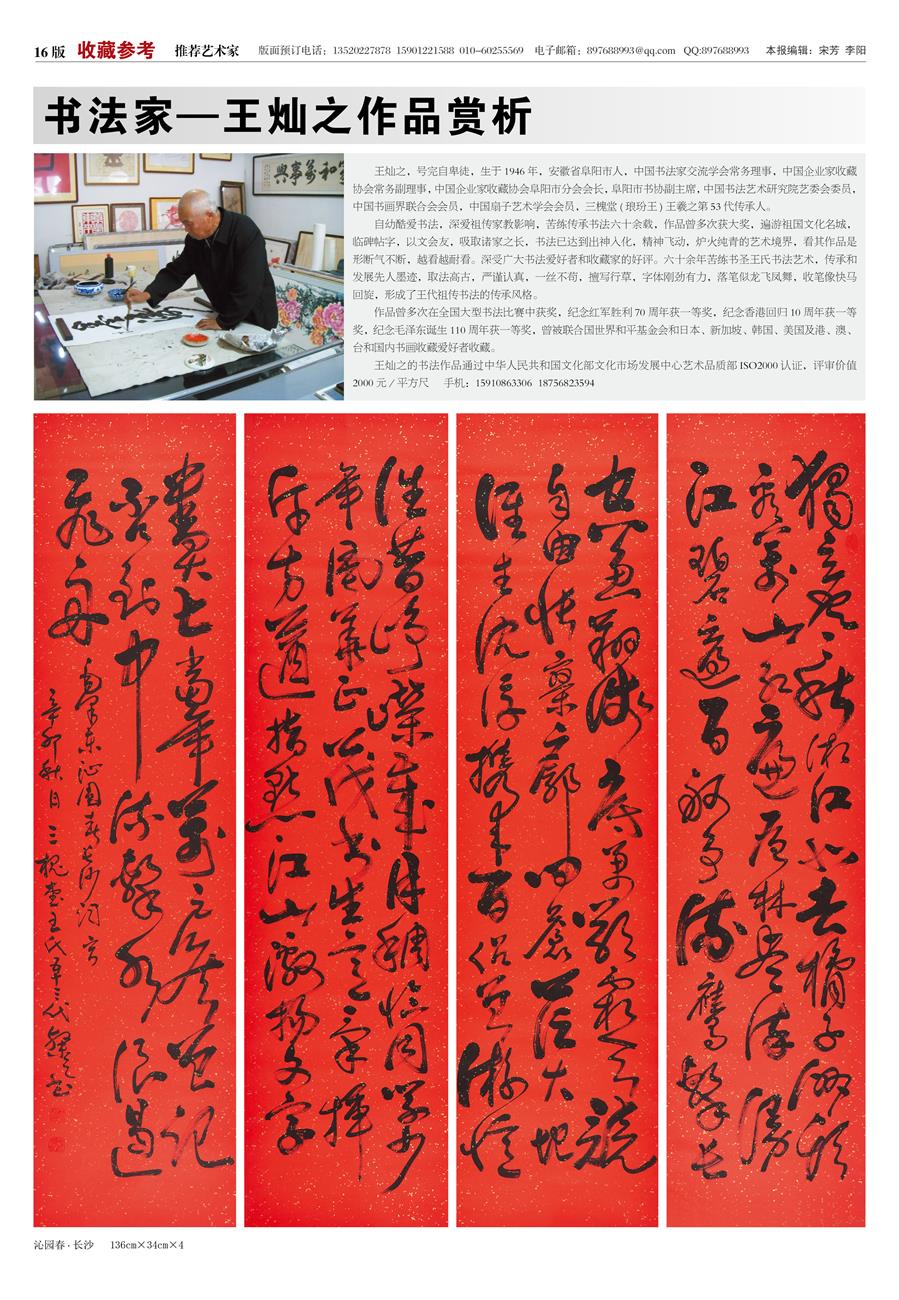 16 版 收藏参考 推荐艺术家 版面预订电话：13520227878 15901221588 010-60255569 电子邮箱：897688993@qq.com QQ:897688993 本报编辑：宋芳 李阳
书法家—王灿之作品赏析
王灿之，号完自卑徒，生于 1946 年，安徽省阜阳市人，中国书法家交流学会常务理事，中国企业家收藏
协会常务副理事，中国企业家收藏协会阜阳市分会会长，阜阳市书协副主席，中国书法艺术研究院艺委会委员，
中国书画界联合会会员，中国扇子艺术学会会员，三槐堂 ( 琅玢王 ) 王羲之第 53 代传承人。
自幼酷爱书法，深爱祖传家教影响，苦练传承书法六十余载，作品曾多次获大奖，遍游祖国文化名城，
临碑帖字，以文会友，吸取诸家之长，书法已达到出神入化，精神飞动，炉火纯青的艺术境界，看其作品是
形断气不断，越看越耐看。深受广大书法爱好者和收藏家的好评。六十余年苦练书圣王氏书法艺术，传承和
发展先人墨迹，取法高古，严谨认真，一丝不苟，擅写行草，字体刚劲有力，落笔似龙飞凤舞，收笔像快马
回旋，形成了王代祖传书法的传承风格。
作品曾多次在全国大型书法比赛中获奖，纪念红军胜利 70 周年获一等奖，纪念香港回归 10 周年获一等
奖，纪念毛泽东诞生 110 周年获一等奖，曾被联合国世界和平基金会和日本、新加坡、韩国、美国及港、澳、
台和国内书画收藏爱好者收藏。
王灿之的书法作品通过中华人民共和国文化部文化市场发展中心艺术品质部 ISO2000 认证，评审价值
2000 元 / 平方尺 手机：15910863306 18756823594
獨立寒秋湘江北去橘子洲頭
看萬山红遍层林尽染漫
江碧透百舸争流鷹擊長
空魚翔淺底萬類霜天競
自由悵寥廓问蒼茫大地
誰主沉浮攜来百侣曾游憶
往昔崢嶸歲月稠恰同學少
年風華正茂书生意气揮
斥方遒指點江山激揚文字
糞土當年萬户侯曾記
否到中流擊水浪遏
飛舟
毛泽东沁園春长沙词
辛卯秋月三槐堂王氏
沁园春 · 长沙 136cm×34cm×4